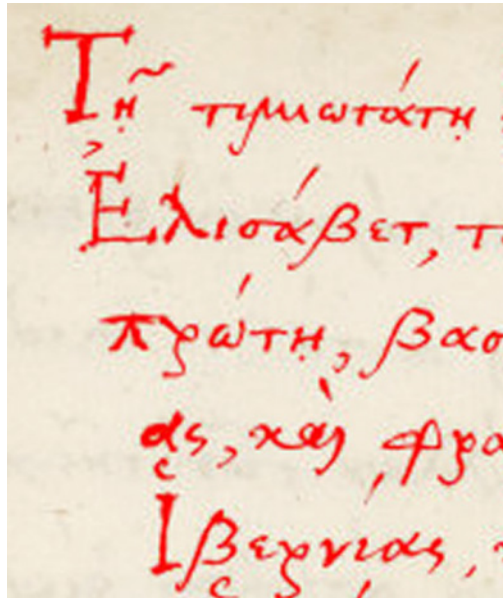 Τῇ τιμιωτάτῃ
Ἐλισάβετ,
πρώτῃ, βασ
ας, καὶ, φρα
Ἰβερνίας,